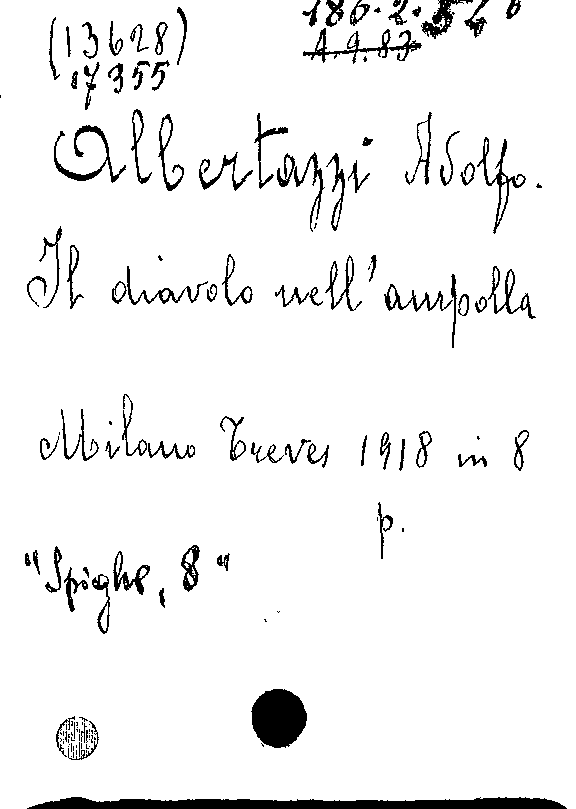 (13628)
17355
186.2.
A.9.83
Albertazzi Adolfo.
Il diavolo nell'ampolla
Milano Treves 1918 in 8
p.
"Spighe, 8"